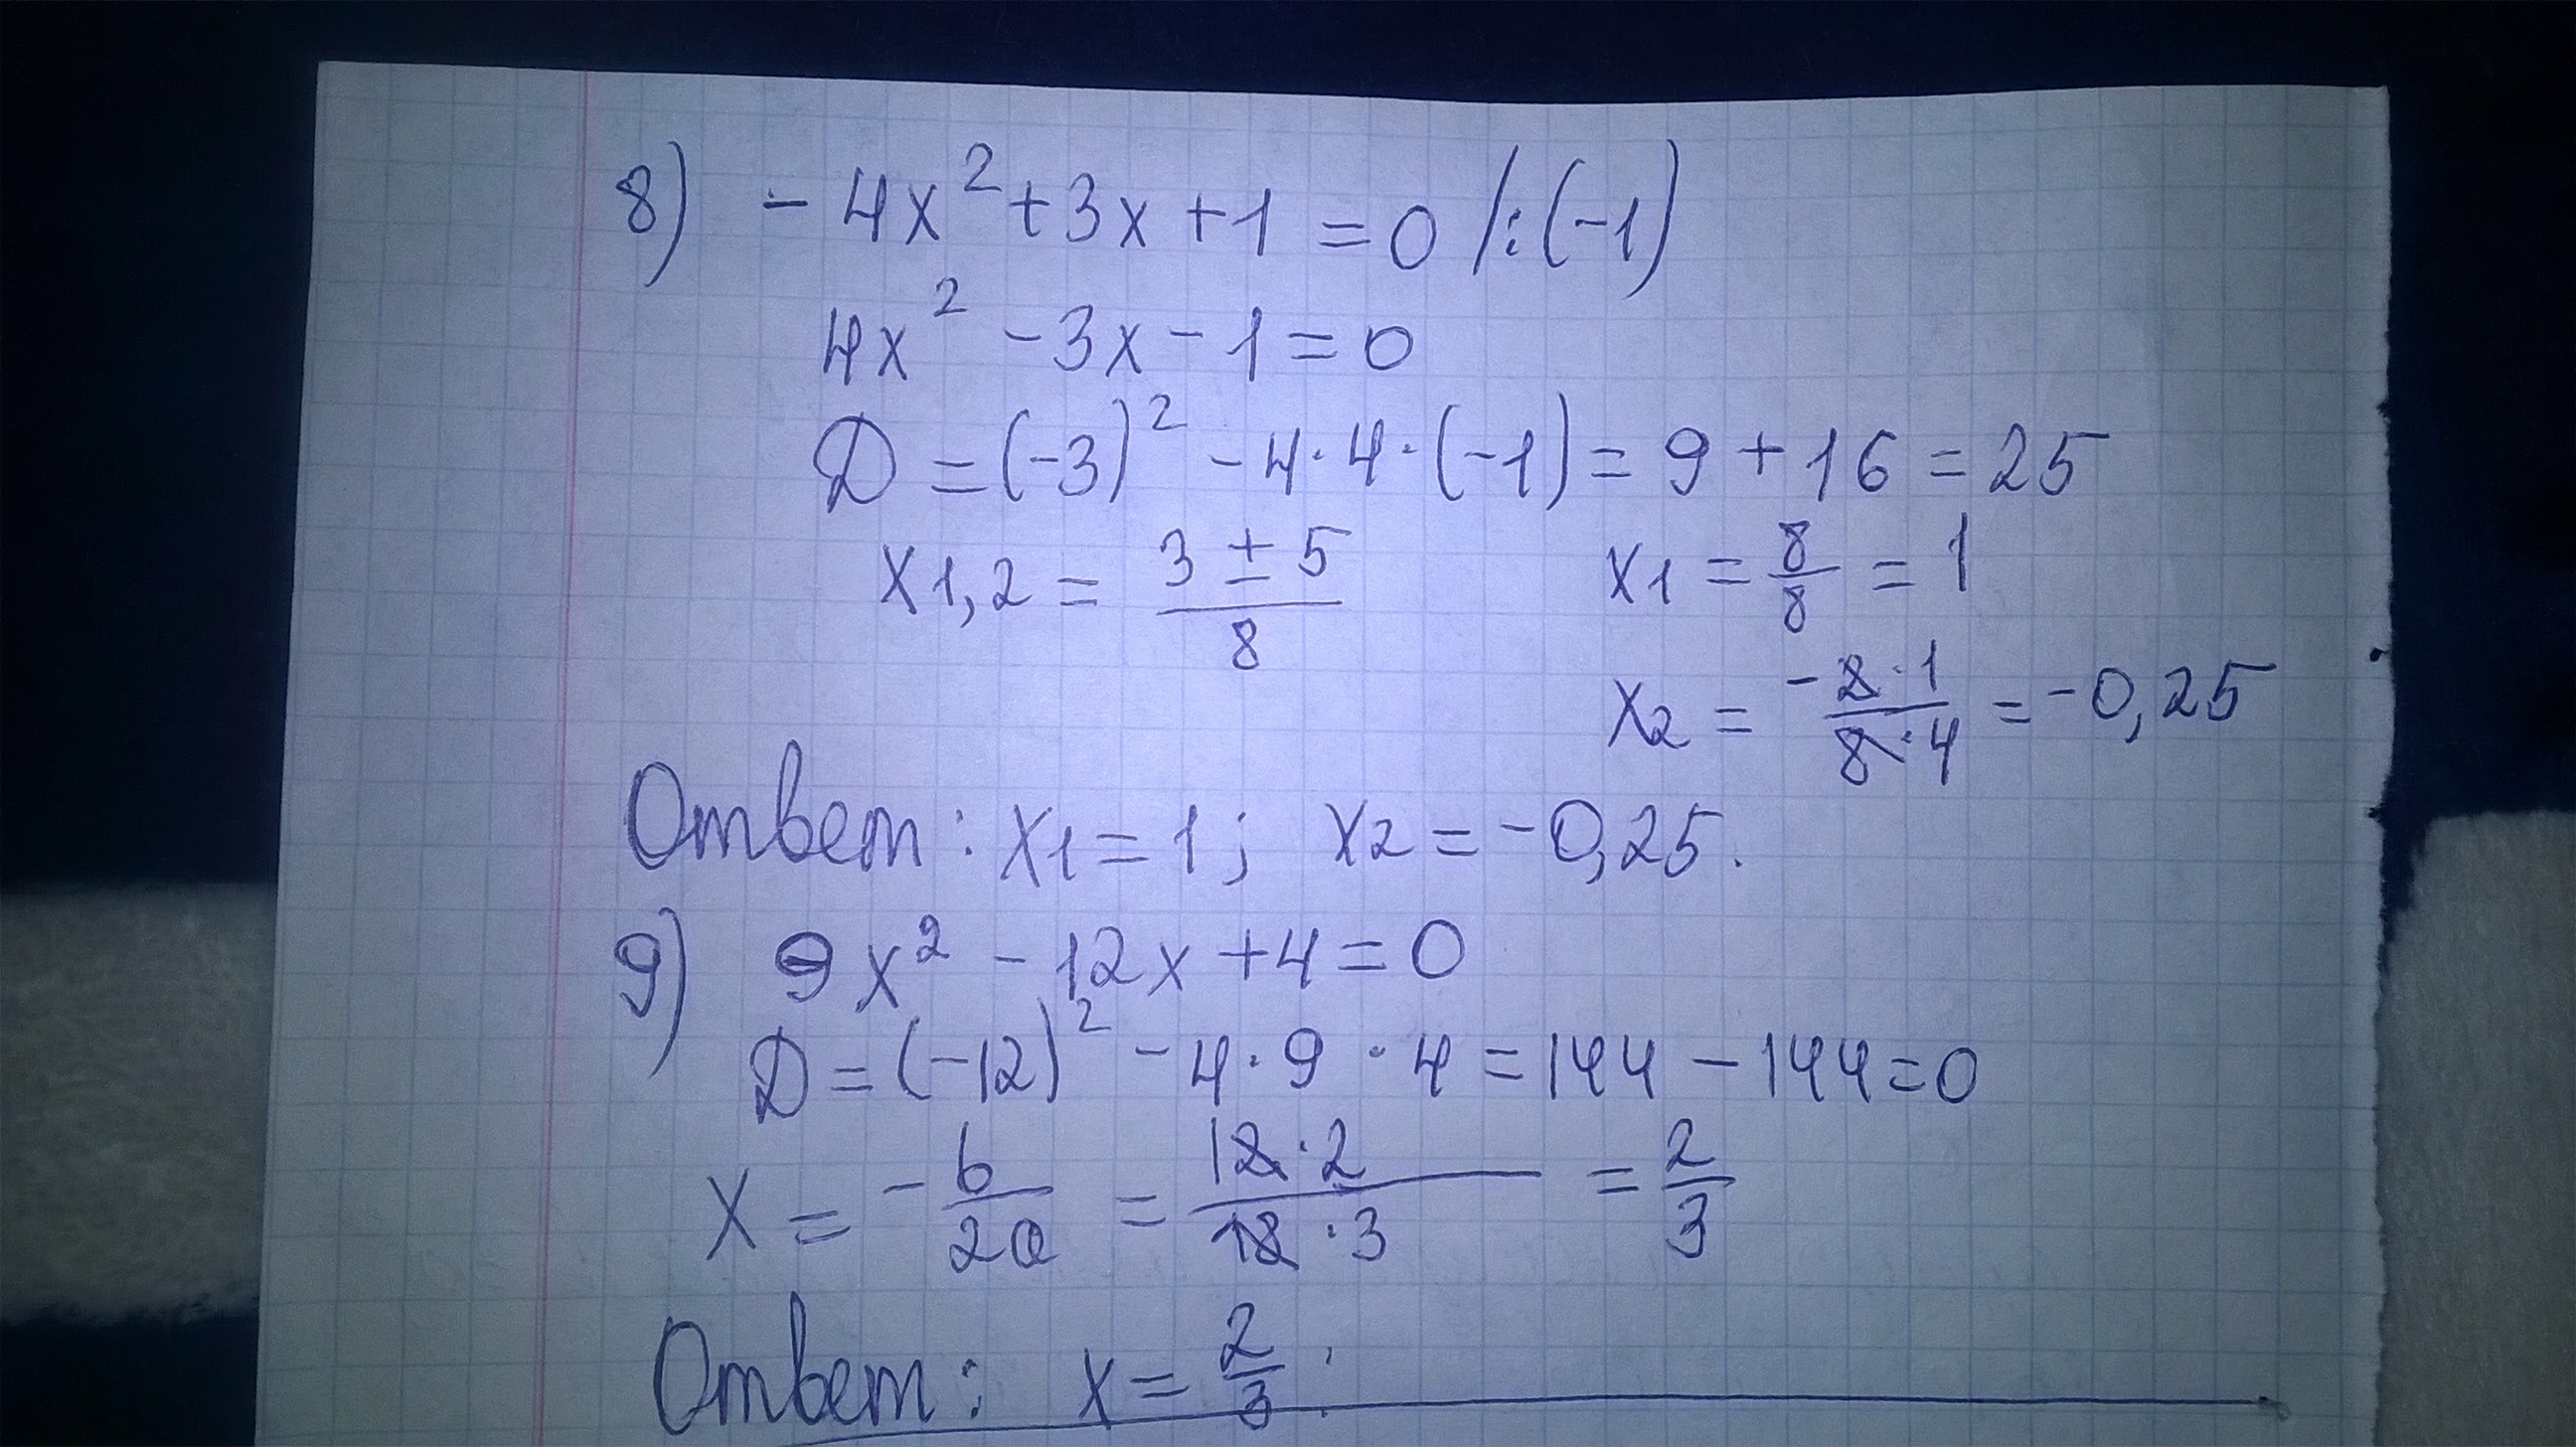 8) -4x² + 3x + 1 = 0 /:(-1)
4x² - 3x - 1 = 0
D = (-3)² - 4·4·(-1) = 9 + 16 = 25
x1,2 = (3 ± 5)/8    x1 = 8/8 = 1
x2 = -2·1/8·4 = -0,25
Ответ: x1 = 1; x2 = -0,25.
9) 9x² - 12x + 4 = 0
D = (-12)² - 4·9·4 = 144 - 144 = 0
x = -b/2a = 12·2/18·3 = 2/3
Ответ: x = 2/3.